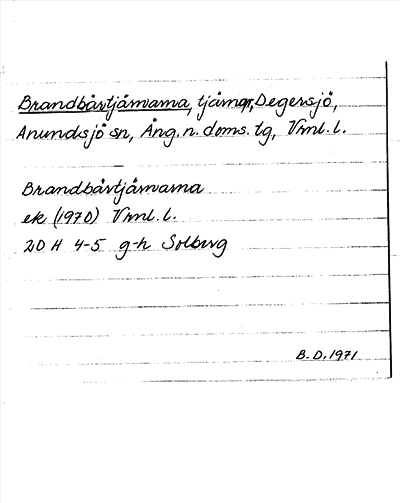 Brandbåvtjärnarna, tjärnar, Degersjö,
Anundsjö sn, Ång. n. doms. tg, Vrml. l.
Brandbåvtjärnarna
ek (1970) Vrml. l.
20 H 4-5 g-h Solberg
B. D. 1971